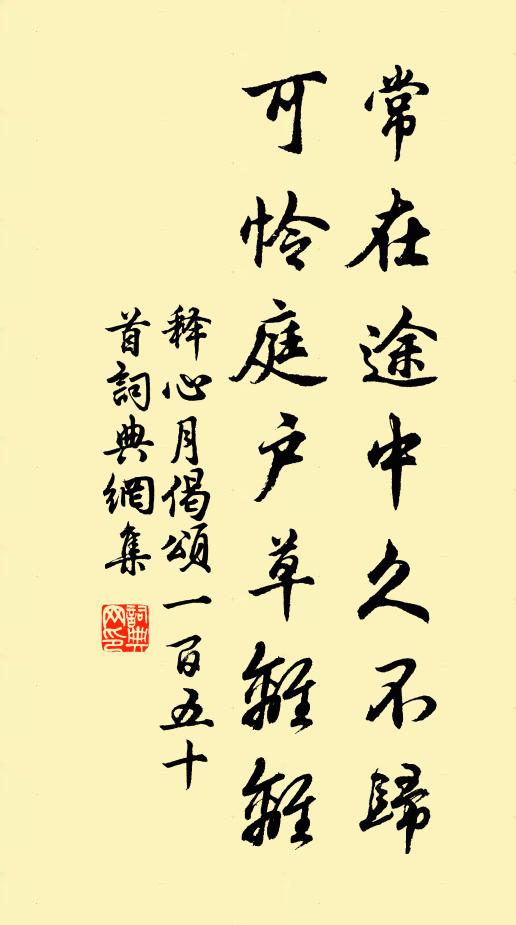 常在途中久不歸
可憐庭户草離離
释心月偈頌一百五十
首詞典網集
詞典
网印